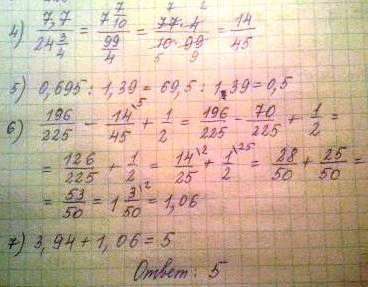 4) 7,7 / 24 3/4 = 7 7/10 / 99/4 = 77·4 / 10·99 = 14/45
7 2
5 9
5) 0,695 : 1,39 = 69,5 : 139 = 0,5
6) 196/225 - 14\5/45 + 1/2 = 196/225 - 70/225 + 1/2 =
= 126/225 + 1/2 = 14\2/25 + 1\25/2 = 28/50 + 25/50 =
= 53/50 = 1 3\2/50 = 1,06
7) 3,94 + 1,06 = 5
Ответ: 5